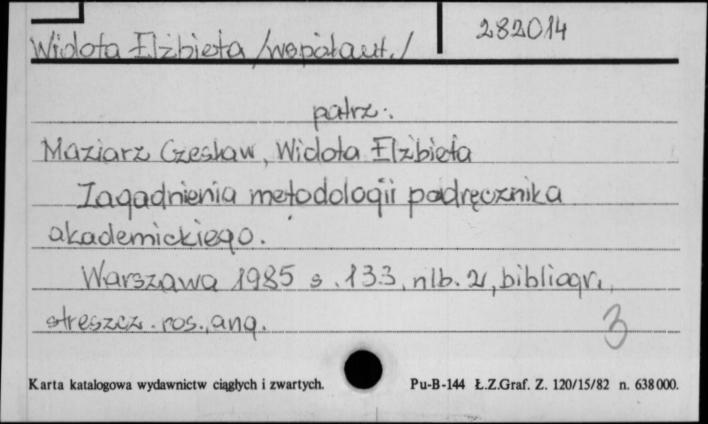 282014
Widota Elżbieta /współaut./
patrz:
Maziarz Czesław, Widota Elżbieta
Zagadnienia metodologii podręcznika
akademickiego.
Warszawa 1985 s. 133, nlb. 2, bibliogr.,
streszcz. ros., ang.
3
Karta katalogowa wydawnictw ciągłych i zwartych. Pu-B-144 Ł.Z.Graf. Z. 120/15/82 n. 638000.